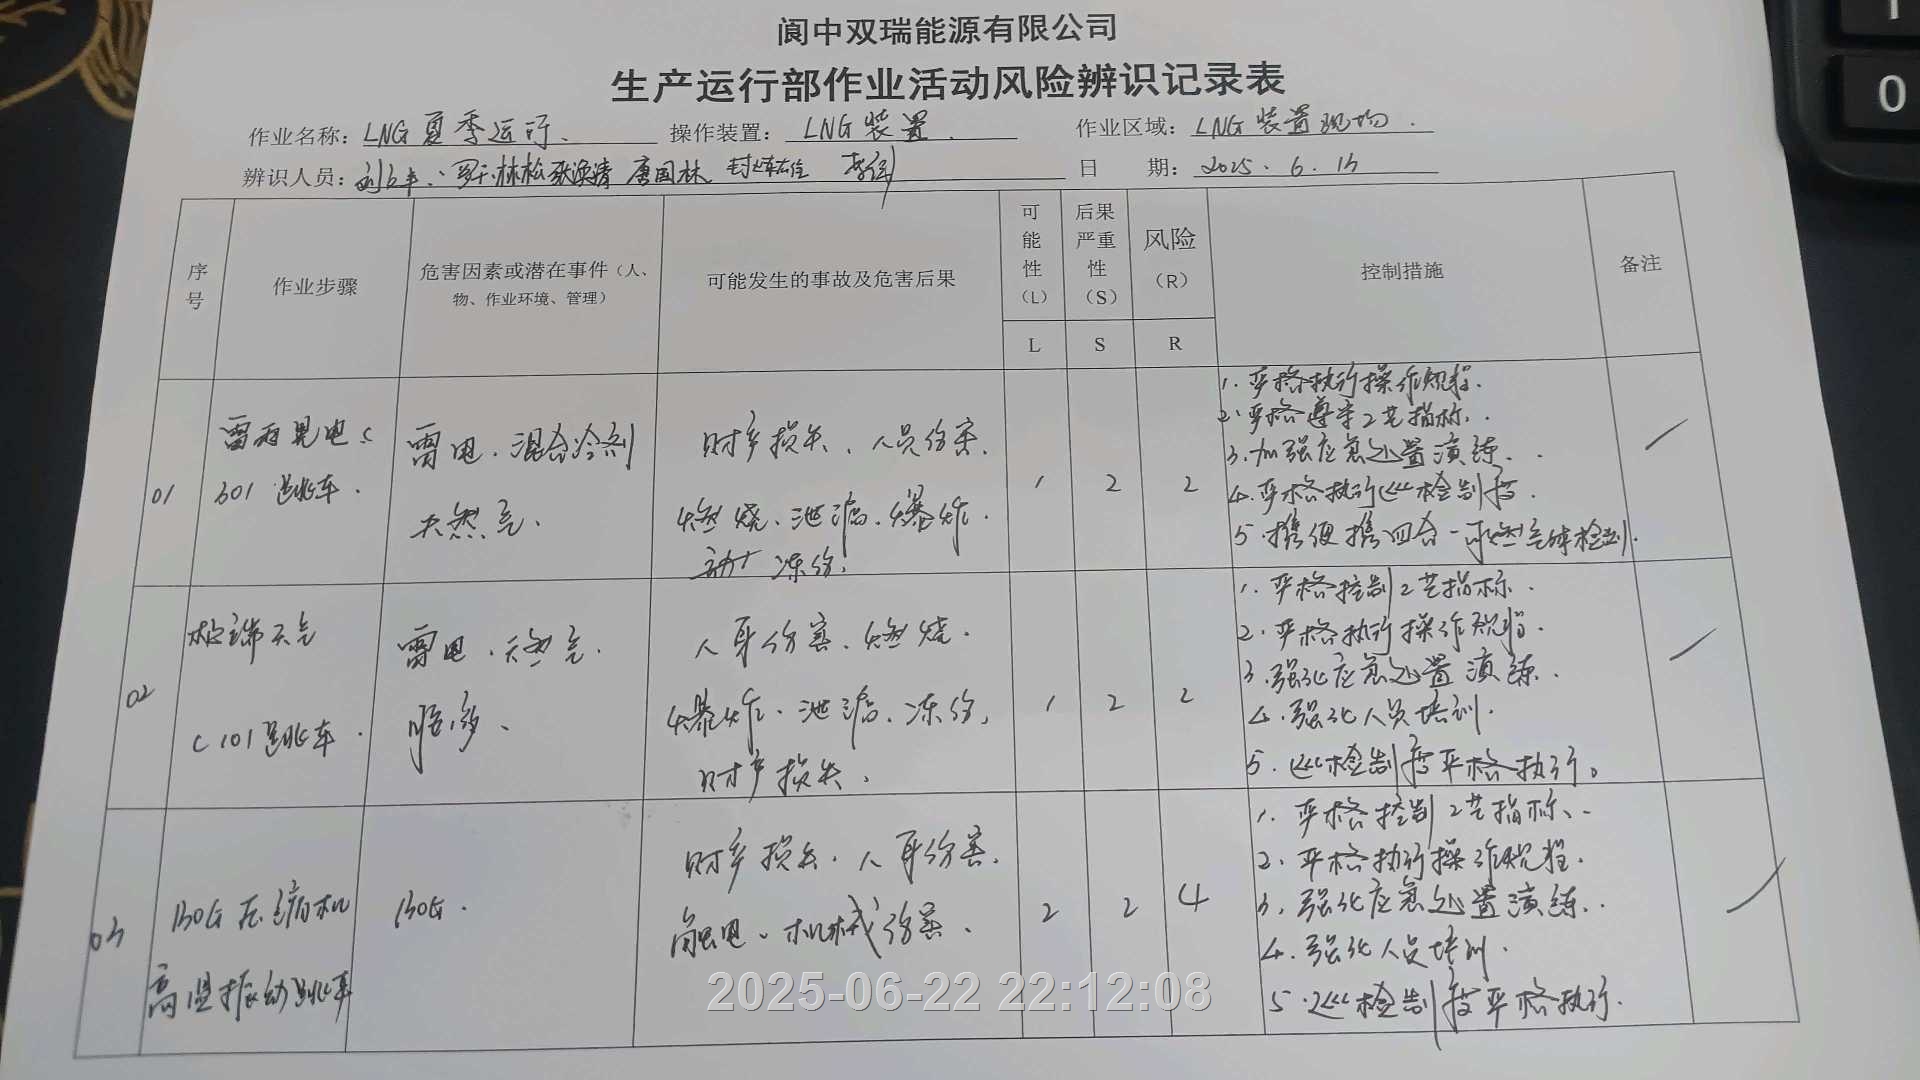 阆中双瑞能源有限公司
生产运行部作业活动风险辨识记录表
作业名称：LNG夏季运行. 操作装置：LNG装置. 作业区域：LNG装置现场.
辨识人员： 唐国林 日 期：2025.6.13
序号 作业步骤 危害因素或潜在事件（人、物、作业环境、管理） 可能发生的事故及危害后果 可能性（L） 后果严重性（S） 风险（R） 控制措施 备注
L S R
01
雷雨晃电
跳车.
雷电.混合冷剂
天然气.
财产损失、人员伤害.
燃烧.泄漏.爆炸.
冻伤.
1 2 2
1.严格执行操作规程.
2.严格遵守工艺指标.
3.加强应急处置演练.
4.严格执行巡检制度.
5.携便携四合一可燃气体检测.
02
极端天气
C101跳车.
雷电.天然气.
人身伤害.燃烧.
爆炸.泄漏.冻伤.
财产损失.
1 2 2
1.严格控制工艺指标.
2.严格执行操作规程.
3.强化应急处置演练.
4.强化人员培训.
5.巡检制度严格执行。
03
BOG压缩机
高温振动跳车
BOG.
财产损失.人身伤害.
触电、机械伤害.
2 2 4
1.严格控制工艺指标.
2.严格执行操作规程.
3.强化应急处置演练.
4.强化人员培训.
5.巡检制度严格执行.
2025-06-22 22:12:08
0